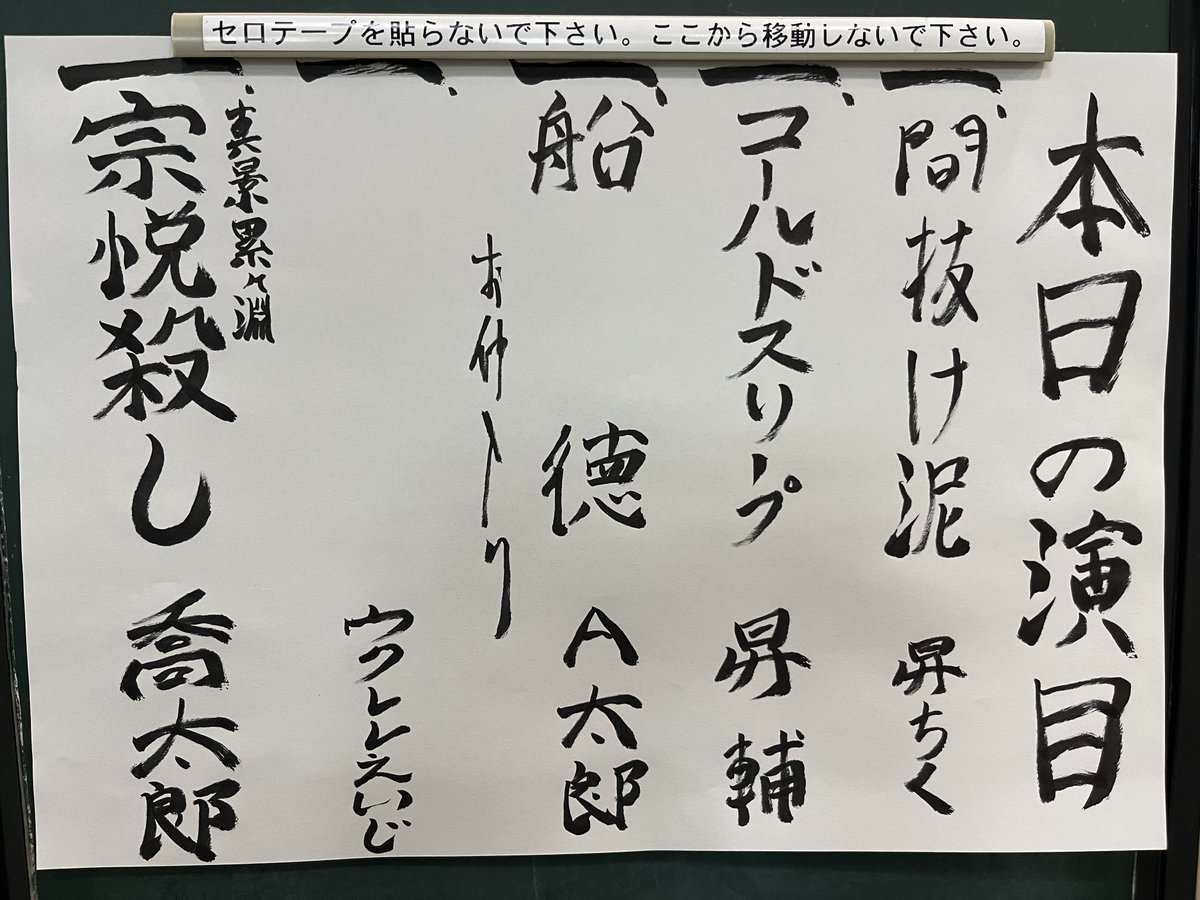 セロテープを貼らないで下さい。ここから移動しないで下さい。
本日の演目
一、間抜け泥 昇ちく
一、コールドスリープ 昇輔
一、船徳 A太郎
お仲入り
一、 ウクレレえいじ
一、真景累々淵
宗悦殺し 喬太郎